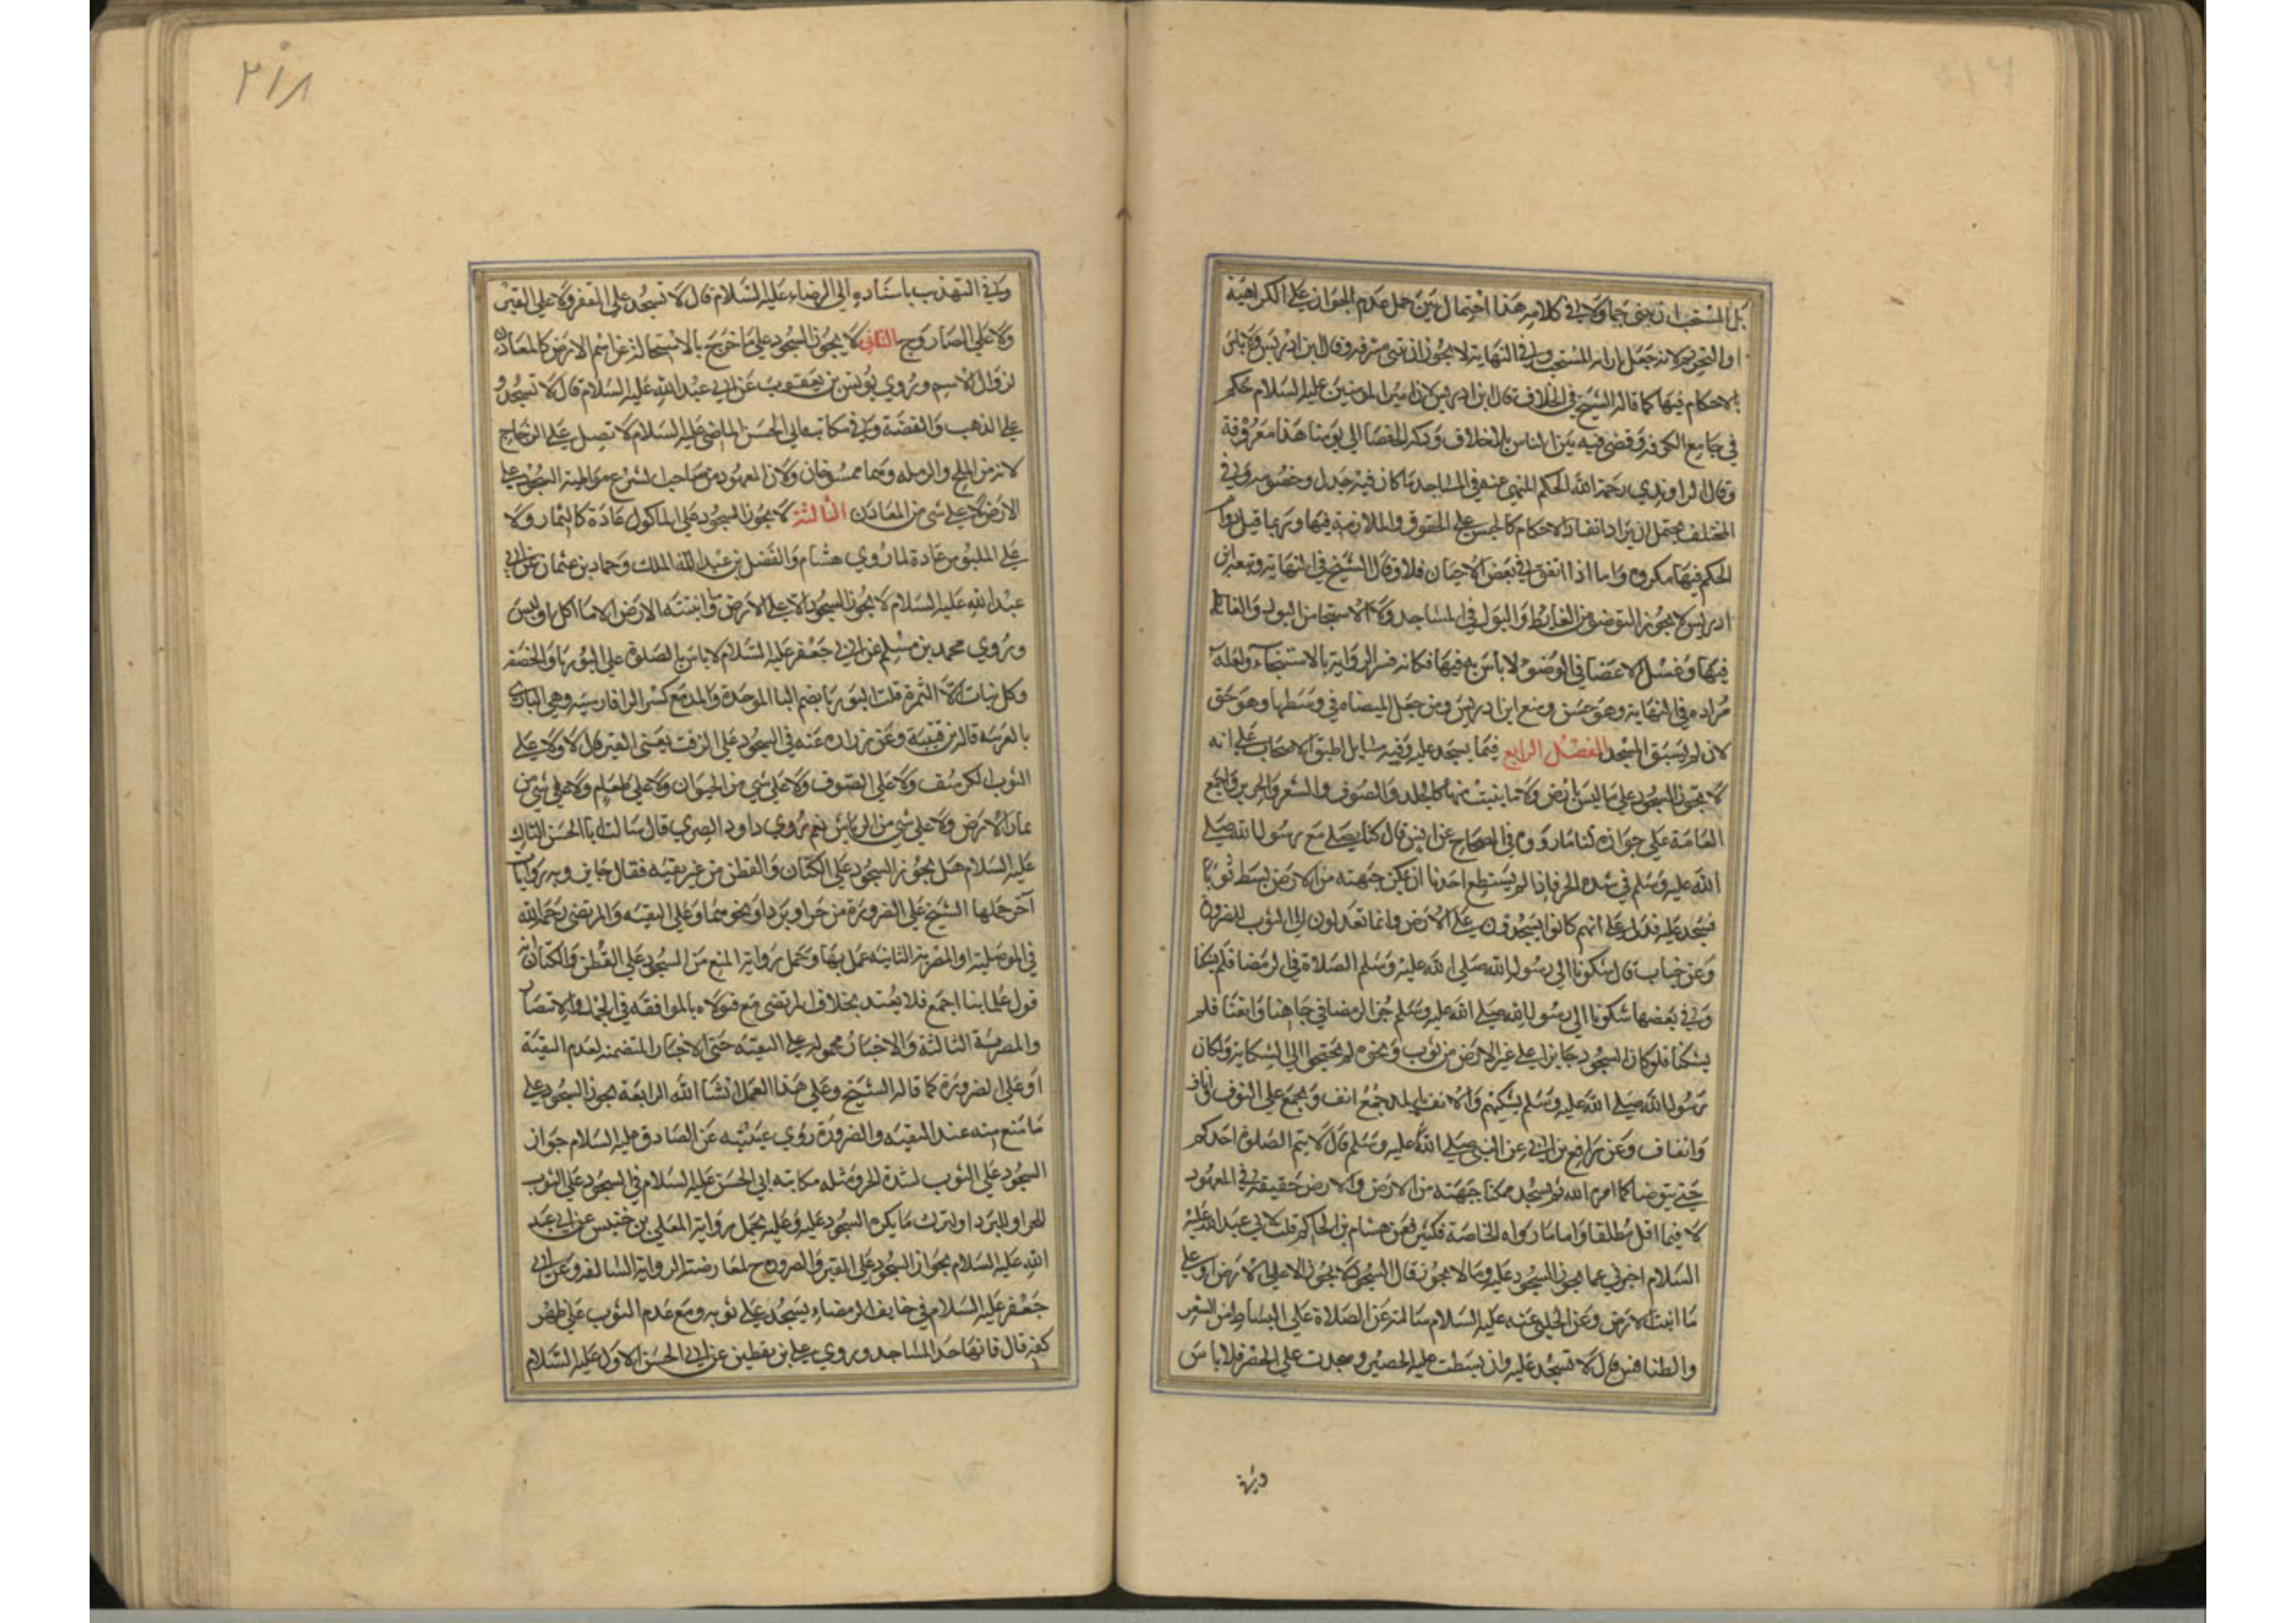 بل المستحب ان يبني جما ولا في كلامه هذا احتمال بين حمل عدم الجواز على الكراهية
او التحريم لانه جعل ازاله المستحب وفي النهاية لا يجوز ان تبنى مشرفه وقال ابن ادريس ولا باس
بالاحكام فيها كما قاله الشيخ في الخلاف قال ابن ادريس لان امير المومنين عليه السلام حكم
في جامع الكوفه وقضى فيه بين الناس بلا خلاف ودكة القضا الى يومنا هذا معروفة
وقال الراوندي رحمة الله الحكم المنهي عنه في المساجد ما كان فيه جدل وخصومه وفي
المختلف يحتمل ان يراد انفاذ الاحكام كالحبس على الحقوق والملازمة فيها وربما قيل دوام
الحكم فيها مكروه واما اذا اتفق في بعض الاحيان فلا وقال الشيخ في النهاية وتبعه ابن
ادريس لا يجوز التوضو من الغايط والبول في المساجد ولا الاستنجا من البول والغايط
فيها وغسل الاعضا في الوضو لا باس به فيها فكانه فسر الرواية بالاستنجاء ولعله
مراده في النهاية وهو حسن ومنع ابن ادريس من جعل الميضاه في وسطها وهو حق
لان لم يسبق المسجد الفصل الرابع فيما يسجد عليه وفيه مسايل اطبق الاصحاب على انه
لا يجوز السجود على ما ليس بارض ولا ما ينبت منها كالجلد والصوف والشعر والحرير واجمع
العامة على جوازه لنا ما رووه في الصحاح عن انس قال كنا يصلى مع رسول الله صلى
الله عليه وسلم في شده الحر فاذا لم يستطع احدنا ان يمكن جبهته من الارض بسط ثوبا
فسجد عليه فدل على انهم كانوا يسجدون على الارض وانما تعدلون الى الثوب للضرورة
وعن خباب قال شكونا الى رسول الله صلى الله عليه وسلم الصلاة في الرمضا فلم يشكنا
وفي بعضها شكونا الى رسول الله صلى الله عليه وسلم حر الرمضا في جباهنا واكفنا فلم
يشكنا فلو كان السجود جايزا على غير الارض من ثوب ونحوه لم يحتجوا الى الشكاية ولكان
رسول الله صلى الله عليه وسلم يشكيهم والانف جمع انف ويجمع على انوف واناف
واناف وعن رافع بن ابي عن النبي صلى الله عليه وسلم قال لا يتم الصلوة احدكم
حتى يتوضا كما امره الله ثم يسجد ممكنا جبهته من الارض والارض حقيقة في المعهود
لا فيما اقل مطلقا واما ما رواه الخاصة فكثير فعن هشام بن الحاكم قلت لابي عبد الله عليه
السلام اخبرني عما يجوز السجود عليه وما لا يجوز قال السجود لا يجوز الا على الارض او على
ما انبت الارض وعن الحلبي عنه عليه السلام سالته عن الصلاة على البساط من الشعر
والطنافس قال لا تسجد عليه وان بسطت عليه الحصير وسجدت على الحصر فلا باس
وفي
٢١٨
وفي التهذيب باسناده الى الرضاء عليه السلام قال لا تسجد على القفر ولا على القير
ولا على الصاروج الثاني لا يجوز السجود على ما خرج بالاستحالة عن اسم الارض كالمعادن
لزوال الاسم وروي يونس بن يعقوب عن ابي عبد الله عليه السلام قال لا تسجد
على الذهب والفضة وفي مكاتبه ابي الحسن الماضي عليه السلام لا تصل على الزجاج
لانه من الملح والرمله وهما ممسوخان ولان المعهود من صاحب الشرع مواظبته السجود على
الارض لا على شي من المعادن الثالثة لا يجوز السجود على الماكول عادة كالثمار ولا
على الملبوس عادة لما روي هشام والفضل بن عبد الملك وحماد بن عثمان عن ابي
عبد الله عليه السلام لا يجوز السجود الا على الارض وما انبتته الارض الا ما اكل او لبس
وروي محمد بن مسلم عن ابي جعفر عليه السلام لا باس بالصلوة على البوريا والخصفه
وكل نبات الا الثمره قلت البوريا بضم البا الموحدة والمد مع كسر الرا فارسيه وهي الباري
بالعربيه قاله بن قتيبه وعن زراره عنه في السجود على الزفت يعني القير قال لا ولا على
الثوب الكرسف ولا على الصوف ولا على شي من الحيوان ولا على طعام ولا على شي من
ثمار الارض ولا على شي من الرياش نعم روي داود الصرمي قال سالت ابا الحسن الثالث
عليه السلام هل يجوز السجود على الكتان والقطن من غير تقيه فقال جايز وبه روايات
اخر حملها الشيخ على الضرورة من حر او برد او نحو منها وعلى التقيه والمرتضى رحمة الله
في الموصلية او المصريه الثانيه عمل بها وحمل رواية المنع من السجود على القطن والكتان انه
قول علماينا اجمع فلا يعتد بخلاف المرتضى مع فتواه بالموافقه في الجمل والانتصار
والمصرية الثالثة والاخبار محموله على التقيه حتى الاخبار المتضمنه لعدم التقية
او على الضرورة كما قاله الشيخ وعلى هذا العمل انشا الله الرابعة يجوز السجود على
ما منع منه عند التقيه والضرورة روي عيينه عن الصادق عليه السلام جواز
السجود على الثوب لشدة الحر ومثله مكاتبه ابي الحسن عليه السلام في السجود على الثوب
للحر او للبرد او لترك ما يكره السجود عليه وعليه يحمل رواية المعلى بن خنيس عن ابي عبد
الله عليه السلام بجواز السجود على القير والصروح لمعارضته الرواية السالفه وعن ابي
جعفر عليه السلام في خايف الرمضاء يسجد على ثوبه ومع عدم الثوب على ظهر
كفه قال فانها احد المساجد وروي علي بن يقطين عن ابي الحسن الاول عليه السلام